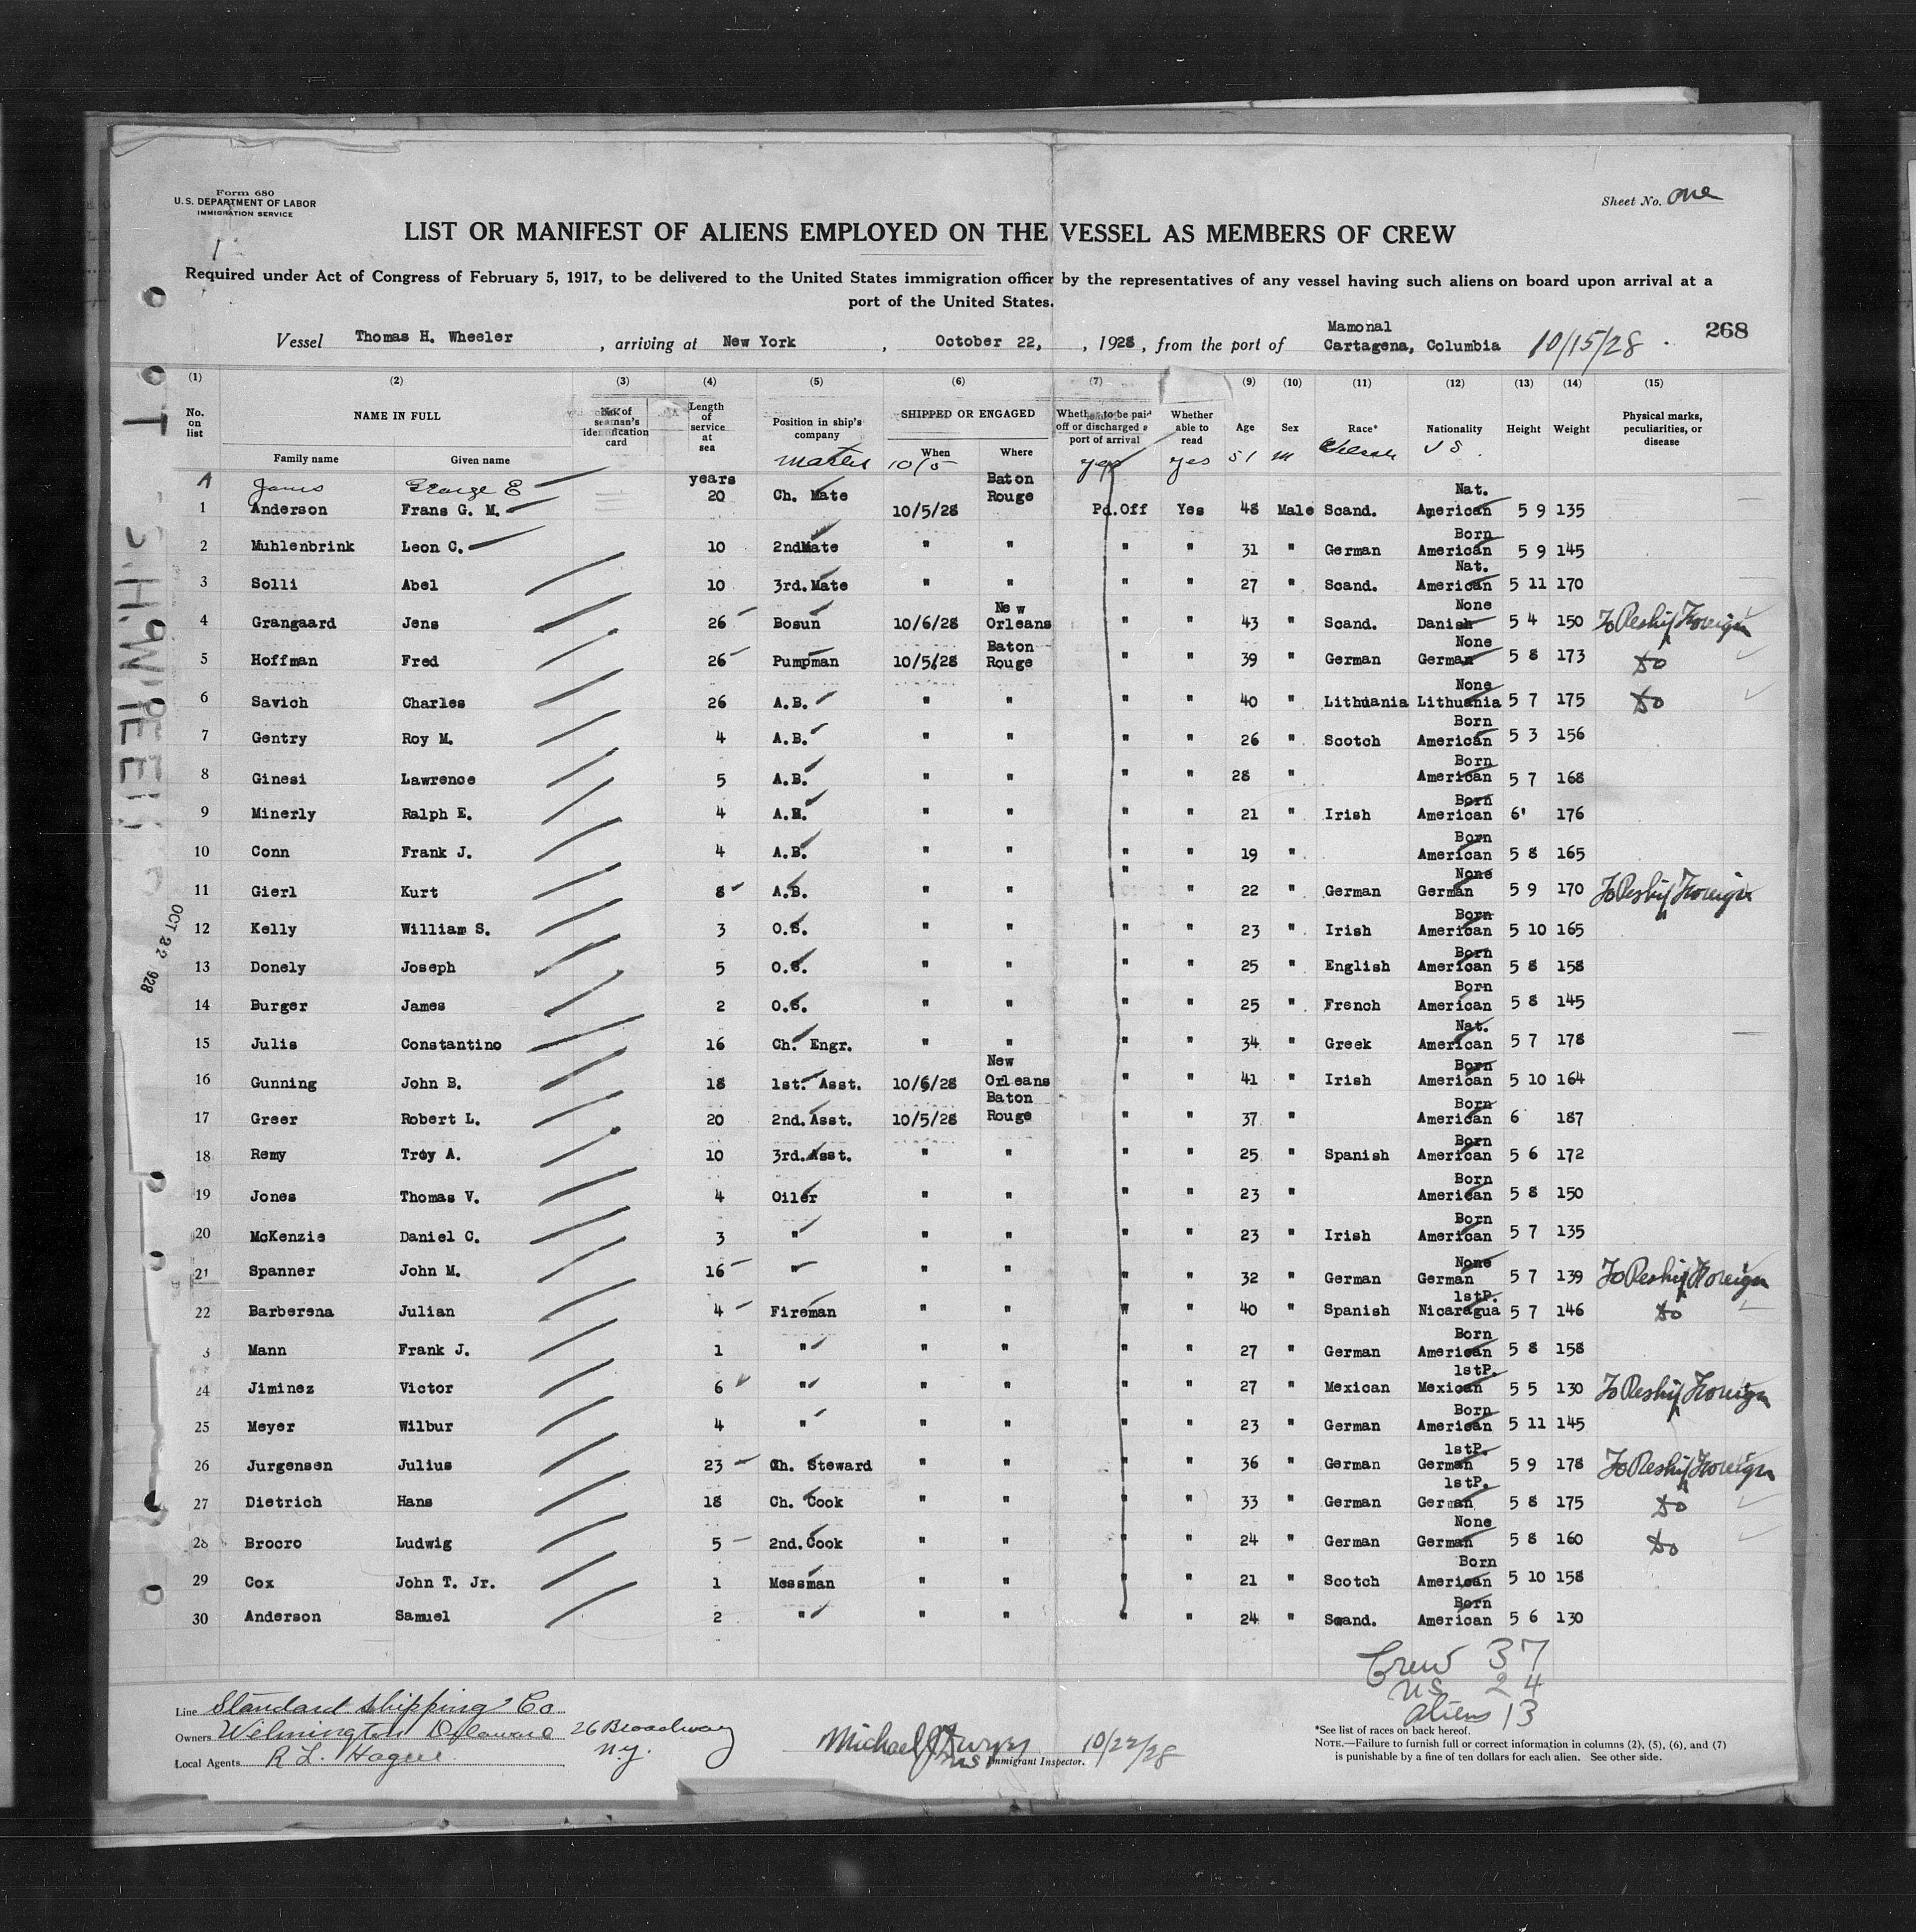 Form 680
U.S. DEPARTMENT OF LABOR
IMMIGRATION SERVICE
Sheet No. One
LIST OR MANIFEST OF ALIENS EMPLOYED ON THE VESSEL AS MEMBERS OF CREW
Required under Act of Congress of February 5, 1917, to be delivered to the United States immigration officer by the representatives of any vessel having such aliens on board upon arrival at a
port of the United States.
268
Vessel Thomas H. Wheeler, arriving at New York, October 22, 1928, from the port of Mamonal Cartagena, Columbia 10/15/28
(1) (2) (3) (4) (5) (6) (7) (9) (10) (11) (12) (13) (14) (15)
No. on list NAME IN FULL Family name Given name No. of seaman's identification card Length of service at sea Position in ship's company SHIPPED OR ENGAGED When Where Whether to be paid off or discharged port of arrival Whether able to read Age Sex Race* Nationality Height Weight Physical marks, peculiarities, or disease
A James George E Master 10/5 yes yes 51 m U S
1 Anderson Frans G. M. years 20 Ch. Mate 10/5/28 Baton Rouge Pd. Off Yes 48 Male Scand. Nat. American 5 9 135
2 Muhlenbrink Leon C. 10 2ndMate " " " " 31 " German Born American 5 9 145
3 Solli Abel 10 3rd. Mate " " " " 27 " Scand. Nat. American 5 11 170
4 Grangaard Jens 26 Bosun 10/6/28 New Orleans " " 43 " Scand. None Danish 5 4 150 To Reship Foreign
5 Hoffman Fred 26 Pumpman 10/5/28 Baton Rouge " " 39 " German None German 5 8 173 Do
6 Savich Charles 26 A.B. " " " " 40 " Lithuania None Lithuania 5 7 175 Do
7 Gentry Roy M. 4 A.B. " " " " 26 " Scotch Born American 5 3 156
8 Ginesi Lawrence 5 A.B. " " " " 28 " Born American 5 7 168
9 Minerly Ralph E. 4 A.B. " " " " 21 " Irish Born American 6' 176
10 Conn Frank J. 4 A.B. " " " " 19 " Born American 5 8 165
11 Gierl Kurt 8 A.B. " " " " 22 " German None German 5 9 170 To Reship Foreign
12 Kelly William S. 3 O.S. " " " " 23 " Irish Born American 5 10 165
13 Donely Joseph 5 O.S. " " " " 25 " English Born American 5 8 158
14 Burger James 2 O.S. " " " " 25 " French Born American 5 8 145
15 Julis Constantino 16 Ch. Engr. " " " " 34 " Greek Nat. American 5 7 178
16 Gunning John B. 18 1st. Asst. 10/6/28 New Orleans " " 41 " Irish Born American 5 10 164
17 Greer Robert L. 20 2nd. Asst. 10/5/28 Baton Rouge " " 37 " Born American 6 187
18 Remy Troy A. 10 3rd. Asst. " " " " 25 " Spanish Born American 5 6 172
19 Jones Thomas V. 4 Oiler " " " " 23 " Born American 5 8 150
20 McKenzie Daniel C. 3 " " " " " 23 " Irish Born American 5 7 135
21 Spanner John M. 16 " " " " " 32 " German None German 5 7 139 To Reship Foreign
22 Barberena Julian 4 Fireman " " " " 40 " Spanish 1stP. Nicaragua 5 7 146 Do
3 Mann Frank J. 1 " " " " " 27 " German Born American 5 8 158
24 Jiminez Victor 6 " " " " " 27 " Mexican 1stP. Mexican 5 5 130 To Reship Foreign
25 Meyer Wilbur 4 " " " " " 23 " German Born American 5 11 145
26 Jurgensen Julius 23 Ch. Steward " " " " 36 " German 1stP. German 5 9 178 To Reship Foreign
27 Dietrich Hans 18 Ch. Cook " " " " 33 " German 1stP. German 5 8 175 Do
28 Brocro Ludwig 5 2nd. Cook " " " " 24 " German None German 5 8 160 Do
29 Cox John T. Jr. 1 Messman " " " " 21 " Scotch Born American 5 10 158
30 Anderson Samuel 2 " " " " " 24 " Scand. Born American 5 6 130
OCT 22 1928
Crew 37
US 24
Aliens 13
Line Standard Shipping Co
Owners Wilmington Delaware 26 Broadway
Local Agents R L. Hague N.Y.
Immigrant Inspector. 10/22/28
*See list of races on back hereof.
NOTE.—Failure to furnish full or correct information in columns (2), (5), (6), and (7)
is punishable by a fine of ten dollars for each alien. See other side.